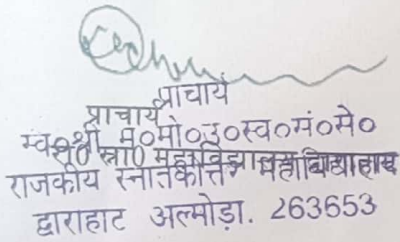 प्राचार्य
प्राचार्य
स्व० श्री म०मो०उ०स्व०सं०से०
राजकीय स्नातकोत्तर महाविद्यालय
द्वाराहाट अल्मोड़ा. 263653